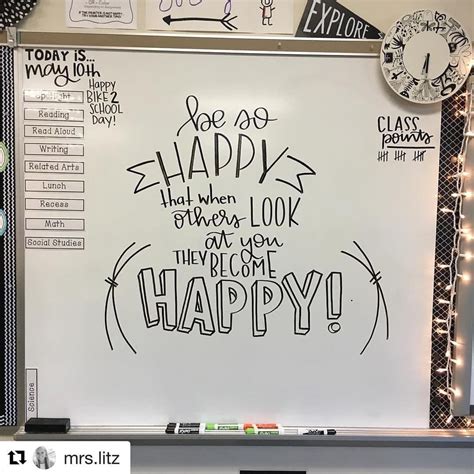 EXPLORE
TODAY IS...
may 10th
Happy
BIKE 2
SCHOOL
DAY!
Spotlight
Reading
Read Aloud
Writing
Related Arts
Lunch
Recess
Math
Social Studies
Science
CLASS
points
be so
HAPPY
that when
others LOOK
at you
THEY BECOME
HAPPY!
mrs.litz